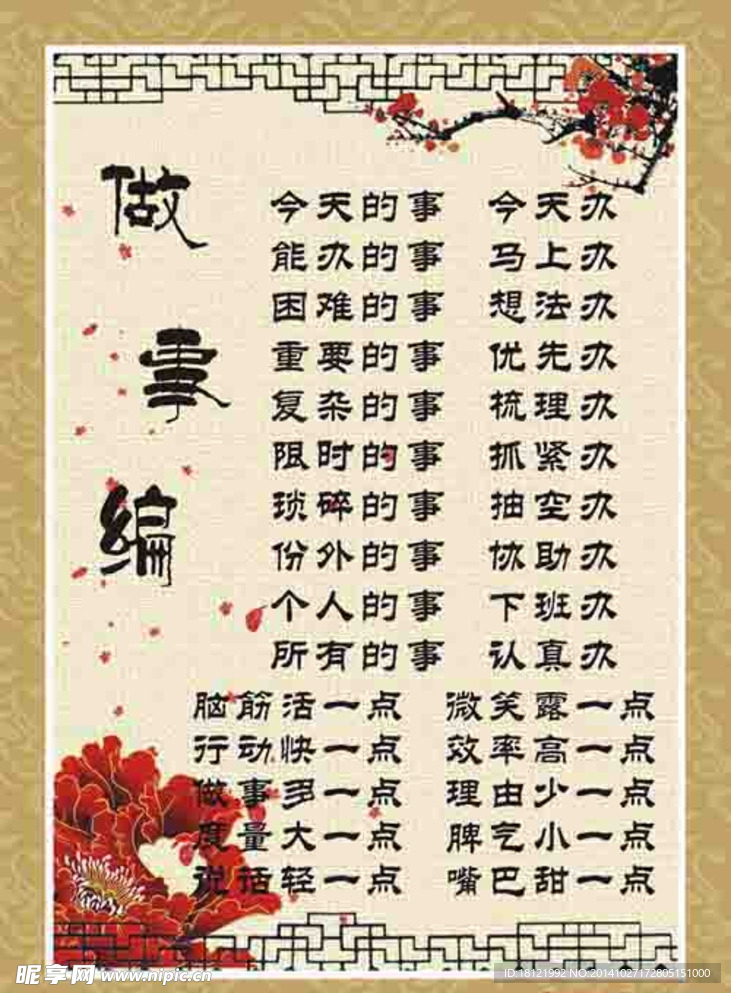 做事编
今天的事 今天办
能办的事 马上办
困难的事 想法办
重要的事 优先办
复杂的事 梳理办
限时的事 抓紧办
琐碎的事 抽空办
份外的事 协助办
个人的事 下班办
所有的事 认真办
脑筋活一点 微笑露一点
行动快一点 效率高一点
做事多一点 理由少一点
度量大一点 脾气小一点
说话轻一点 嘴巴甜一点
昵享网 www.nipic.cn
ID:18121992 NO:20141027172805151000